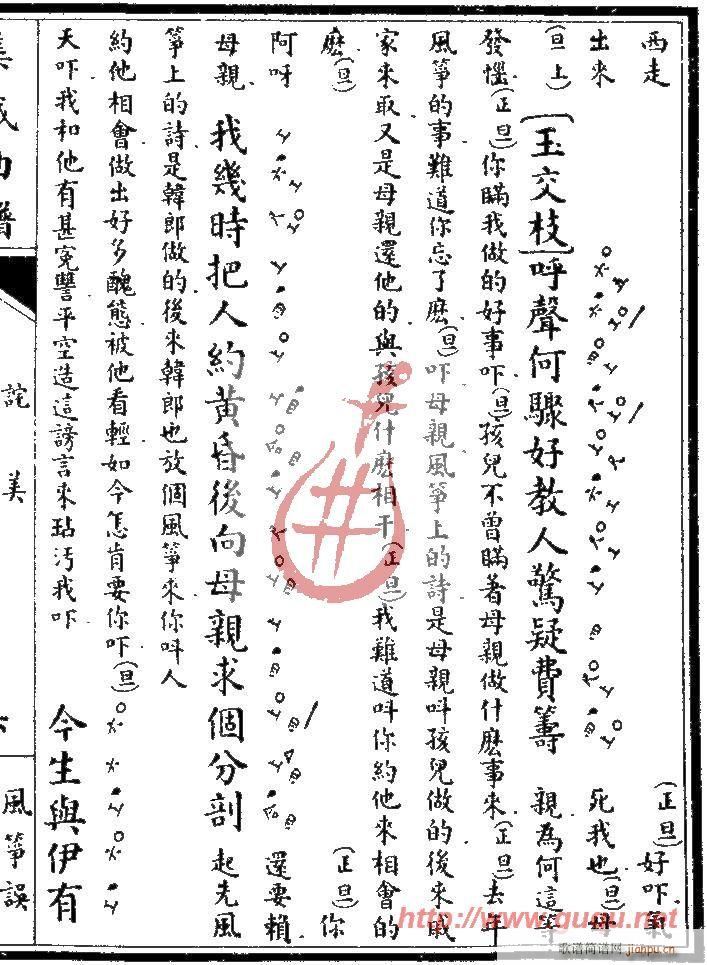 西走 (正旦)好吓氣
出來 死我也(旦)母
(旦上)【玉交枝】呼聲何驟好教人驚疑費籌 親為何這等
發惱(正旦)你瞞我做的好事吓(旦)孩兒不曾瞞著母親做什麽事來(正旦)去年
風箏的事難道你忘了麽(旦)吓母親風箏上的詩是母親叫孩兒做的後來戚
家來取又是母親還他的與孩兒什麽相干(正旦)我難道叫你約他來相會的
麽(旦) (正旦)你
阿呀 還要賴
母親 我幾時把人約黃昏後向母親求個分剖 起先風
箏上的詩是韓郎做的後來韓郎也放個風箏來你叫人
約他相會做出好多醜態被他看輕如今怎肯要你吓(旦)
天吓我和他有甚冤讐平空造這謗言來玷污我吓 今生與伊有
集成曲譜 詫美 風箏誤
http://www.ququ.net.cn
歌谱简谱网 jianpu.cn